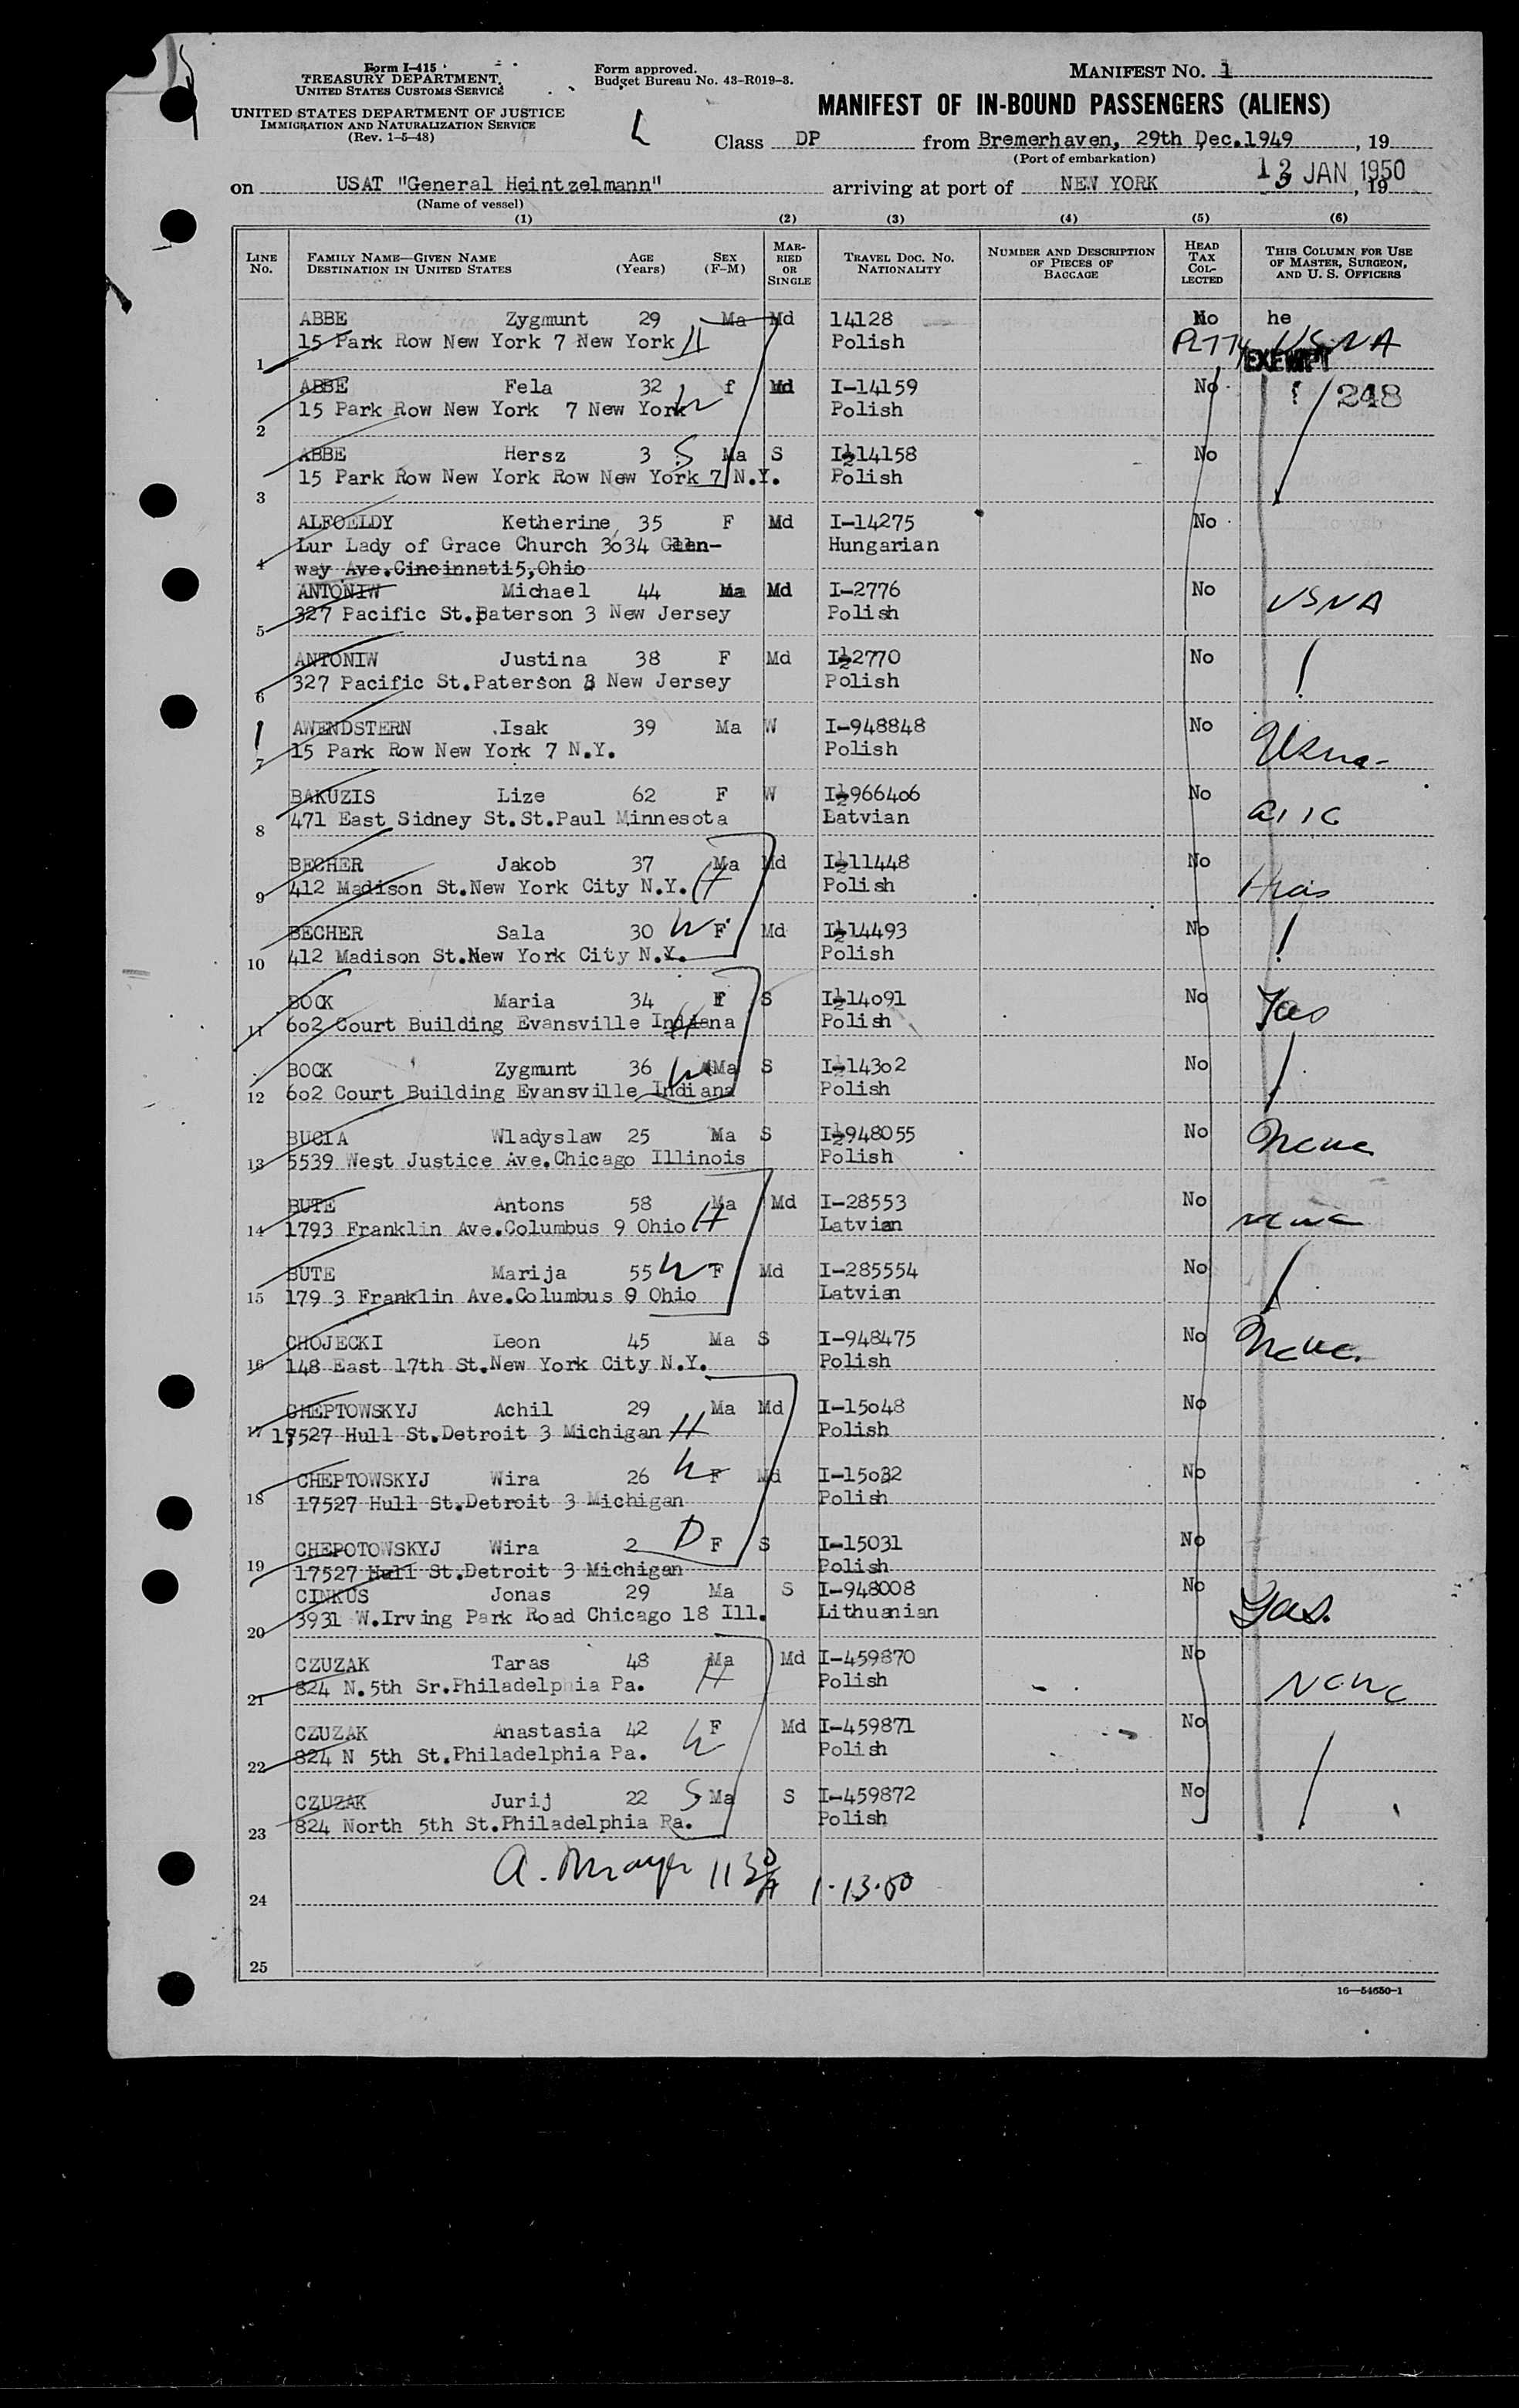 Form I-415
TREASURY DEPARTMENT
UNITED STATES CUSTOMS SERVICE
UNITED STATES DEPARTMENT OF JUSTICE
IMMIGRATION AND NATURALIZATION SERVICE
(Rev. 1-5-48)
Form approved.
Budget Bureau No. 43-R019-3.
MANIFEST NO. 1
MANIFEST OF IN-BOUND PASSENGERS (ALIENS)
L
Class DP from Bremerhaven, 29th Dec.1949, 19
(Port of embarkation)
on USAT "General Heintzelmann" arriving at port of NEW YORK 13 JAN 1950, 19
(Name of vessel)
(1) (2) (3) (4) (5) (6)
LINE No. FAMILY NAME—GIVEN NAME DESTINATION IN UNITED STATES AGE (Years) SEX (F-M) MARRIED OR SINGLE TRAVEL DOC. NO. NATIONALITY NUMBER AND DESCRIPTION OF PIECES OF BAGGAGE HEAD TAX COLLECTED THIS COLUMN FOR USE OF MASTER, SURGEON, AND U. S. OFFICERS
ABBE Zygmunt 29 Ma Md 14128 No he
1 15 Park Row New York 7 New York H Polish USNA
EXEMPT
ABBE Fela 32 f Md I-14159 No 248
2 15 Park Row New York 7 New York W Polish
ABBE Hersz 3 S Ma S I-14158 No
3 15 Park Row New York Row New York 7 N.Y. Polish
ALFOELDY Ketherine 35 F Md I-14275 No
Lur Lady of Grace Church 3o34 Glen- Hungarian
4 way Ave.Cincinnati5,Ohio
ANTONIW Michael 44 Ma Md I-2776 No USNA
5 327 Pacific St.Paterson 3 New Jersey Polish
ANTONIW Justina 38 F Md I-2770 No
6 327 Pacific St.Paterson 3 New Jersey Polish
AWENDSTERN Isak 39 Ma W I-948848 No Usna
7 15 Park Row New York 7 N.Y. Polish
BAKUZIS Lize 62 F W I-9664o6 No
8 471 East Sidney St.St.Paul Minnesota Latvian
BECHER Jakob 37 Ma Md I-11448 No Hias
9 412 Madison St.New York City N.Y. H Polish
BECHER Sala 30 W F Md I-14493 No
10 412 Madison St.New York City N.Y. Polish
BOCK Maria 34 F S I-14o91 No
11 6o2 Court Building Evansville Indiana Polish
BOCK Zygmunt 36 Ma S I-143o2 No
12 6o2 Court Building Evansville Indiana Polish
BUCIA Wladyslaw 25 Ma S I-948o55 No Ncwc
13 5539 West Justice Ave.Chicago Illinois Polish
BUTE Antons 58 Ma Md I-28553 No
14 1793 Franklin Ave.Columbus 9 Ohio H Latvian Ncwc
BUTE Marija 55 W F Md I-285554 No
15 179 3 Franklin Ave.Columbus 9 Ohio Latvian
CHOJECKI Leon 45 Ma S I-948475 No Ncwc.
16 148 East 17th St.New York City N.Y. Polish
CHEPTOWSKYJ Achil 29 Ma Md I-15o48 No
17 17527 Hull St.Detroit 3 Michigan H Polish
CHEPTOWSKYJ Wira 26 W F Md I-15o32 No
18 17527 Hull St.Detroit 3 Michigan Polish
CHEPOTOWSKYJ Wira 2 D F S I-15031 No
19 17527 Hull St.Detroit 3 Michigan Polish
CINKUS Jonas 29 Ma S I-948008 No
20 3931 W.Irving Park Road Chicago 18 Ill. Lithuanian
CZUZAK Taras 48 Ma Md I-459870 No
21 824 N.5th Sr.Philadelphia Pa. H Polish Ncwc
CZUZAK Anastasia 42 F Md I-459871 No
22 824 N 5th St.Philadelphia Pa. W Polish
CZUZAK Jurij 22 S Ma S I-459872 No
23 824 North 5th St.Philadelphia Pa. Polish
24 1-13-50
25
16—54650-1